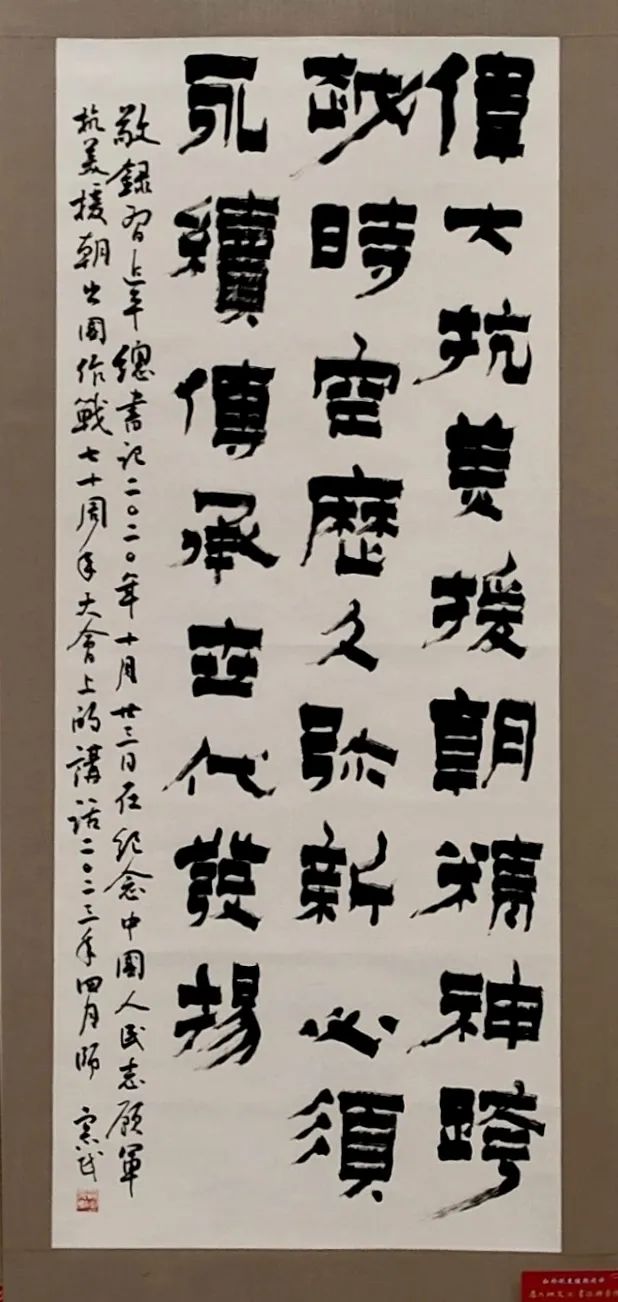 偉大抗美援朝精神跨
越時空歷久弥新必須
永續傳承世代發揚
敬錄習近平總書記二〇二〇年十月廿三日在紀念中國人民志願軍
抗美援朝出國作戰七十周年大會上的講話二〇二三年四月師